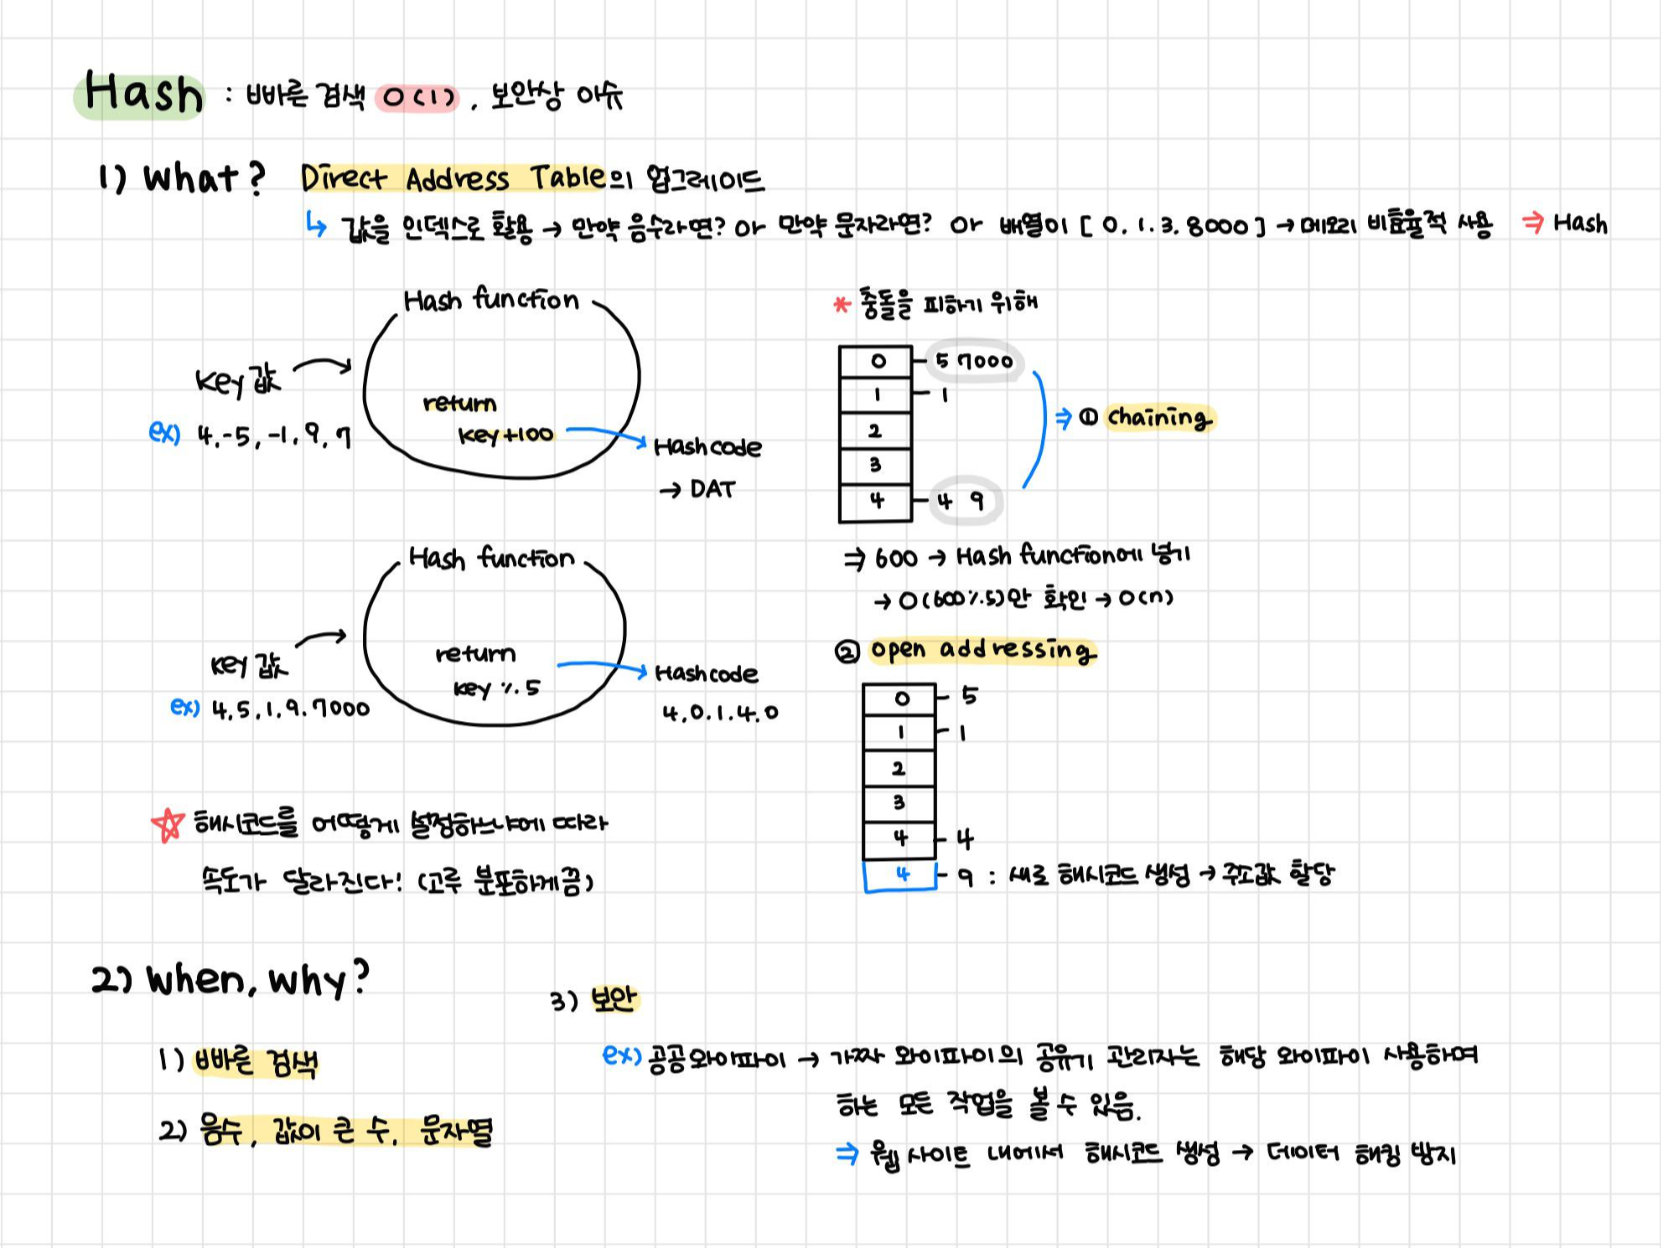 Hash : 빠른 검색 O(1), 보안상 이슈
1) What? Direct Address Table의 업그레이드
↳ 값을 인덱스로 활용 → 만약 음수라면? or 만약 문자라면? or 배열이 [0, 1, 3, 8000] → 메모리 비효율적 사용 ⇒ Hash
Hash function
key 값
ex) 4, -5, -1, 9, 7
return
key+100
Hashcode
→ DAT
Hash function
key 값
ex) 4, 5, 1, 9, 7000
return
key % 5
Hashcode
4, 0, 1, 4, 0
☆ 해시코드를 어떻게 설정하느냐에 따라
속도가 달라진다! (고루 분포하게끔)
* 충돌을 피하기 위해
0 - 5 7000
1 - 1
2
3
4 - 4 9
⇒ ① chaining
⇒ 600 → Hash function에 넣기
→ 0(600%5)만 확인 → O(n)
② open addressing
0 - 5
1 - 1
2
3
4 - 4
4 - 9 : 새로 해시코드 생성 → 주소값 할당
2) When, why?
1) 빠른 검색
2) 음수, 값이 큰 수, 문자열
3) 보안
ex) 공공와이파이 → 가짜 와이파이의 공유기 관리자는 해당 와이파이 사용하며
하는 모든 작업을 볼 수 있음.
⇒ 웹 사이트 내에서 해시코드 생성 → 데이터 해킹 방지